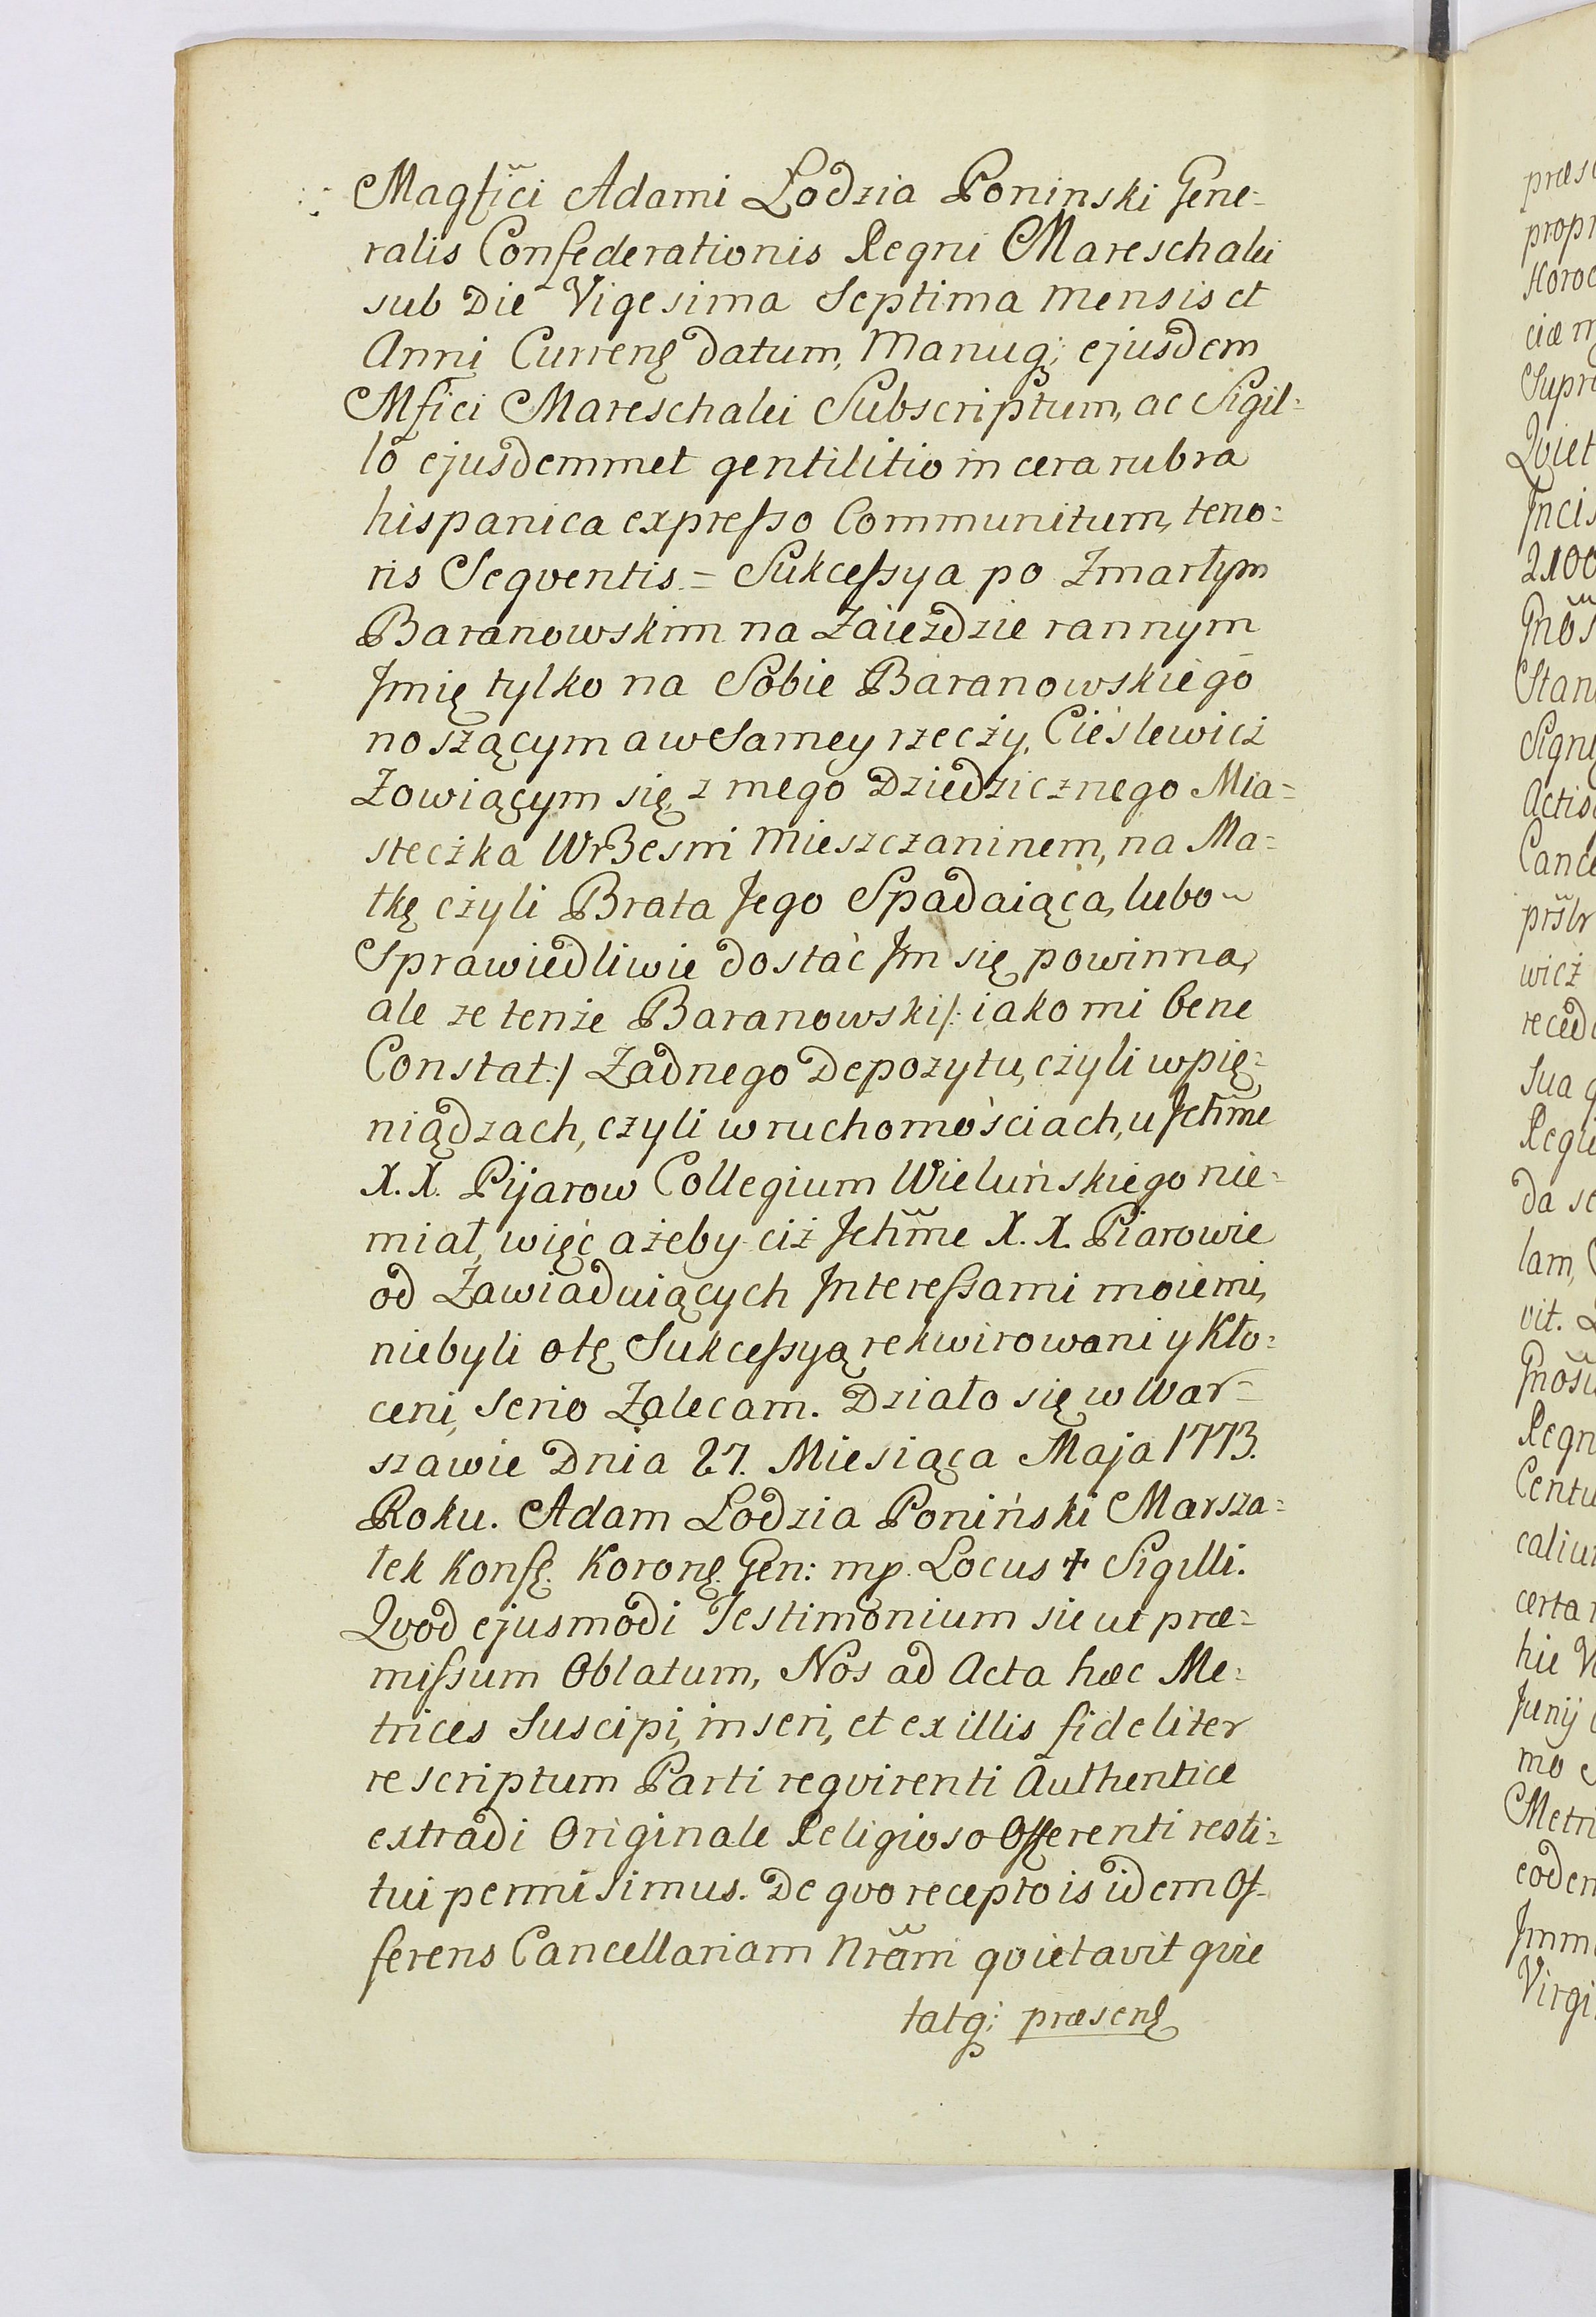 Magfici Adami Lodzia Poninski Gene-
ralis Confederationis Regni Mareschalci
sub Die Vigesima Septima mensis et
Anni Currenę datum, Manuq; ejusdem
Mfici Mareschalci Subscriptum, ac Sigil=
lo ejusdemmet gentilitio in cera rubra
hispanica expresso Communitum, teno=
ris Seqventis = Sukcessya po Zmarłym
Baranowskim na Zaieździe rannym
Jmię tylko na Sobie Baranowskiego
noszącym a w Samey rzeczy, Cieślewicz
Zowiącym się, z mego Dziedzicznego Mia=
steczka Wrzesni mieszczaninem, na Ma=
tkę czyli Brata Jego Spadaiąca, lubo
Sprawiedliwie dostać Jm się powinna,
ale ze tenże Baranowski /: iako mi bene
Constat :/ Żadnego Depozytu, czyli w pię=
niądzach, czyli w ruchomościach, u Jchm̃e
X. X. Pijarow Collegium Wieluńskiego nie=
miał, więc ażeby ciż Jchm̃e X. X. Piarowie
od Zawiaduiących Jnteressami moiemi,
niebyli o tę Sukcessyą rekwirowani y Kłu=
ceni, Serio Zalecam. Działo się w War=
szawie Dnia 27. Miesiąca Maja 1773.
Roku. Adam Lodzia Poniński Marsza=
łek Konfę. Koronę. Gen: mp. Locus ✝ Sigilli.
Qvod ejusmodi Testimonium sicut præ=
missum Oblatum, Nos ad Acta hæc Me=
trices Suscipi, inseri, et ex illis fideliter
rescriptum Parti reqvirenti Authentice
extradi Originale Religioso Offerenti resti=
tui permisimus. De qvo recepto is idem Of-
ferens Cancellariam Nrãm qvietavit qvie
tatq; præsenę